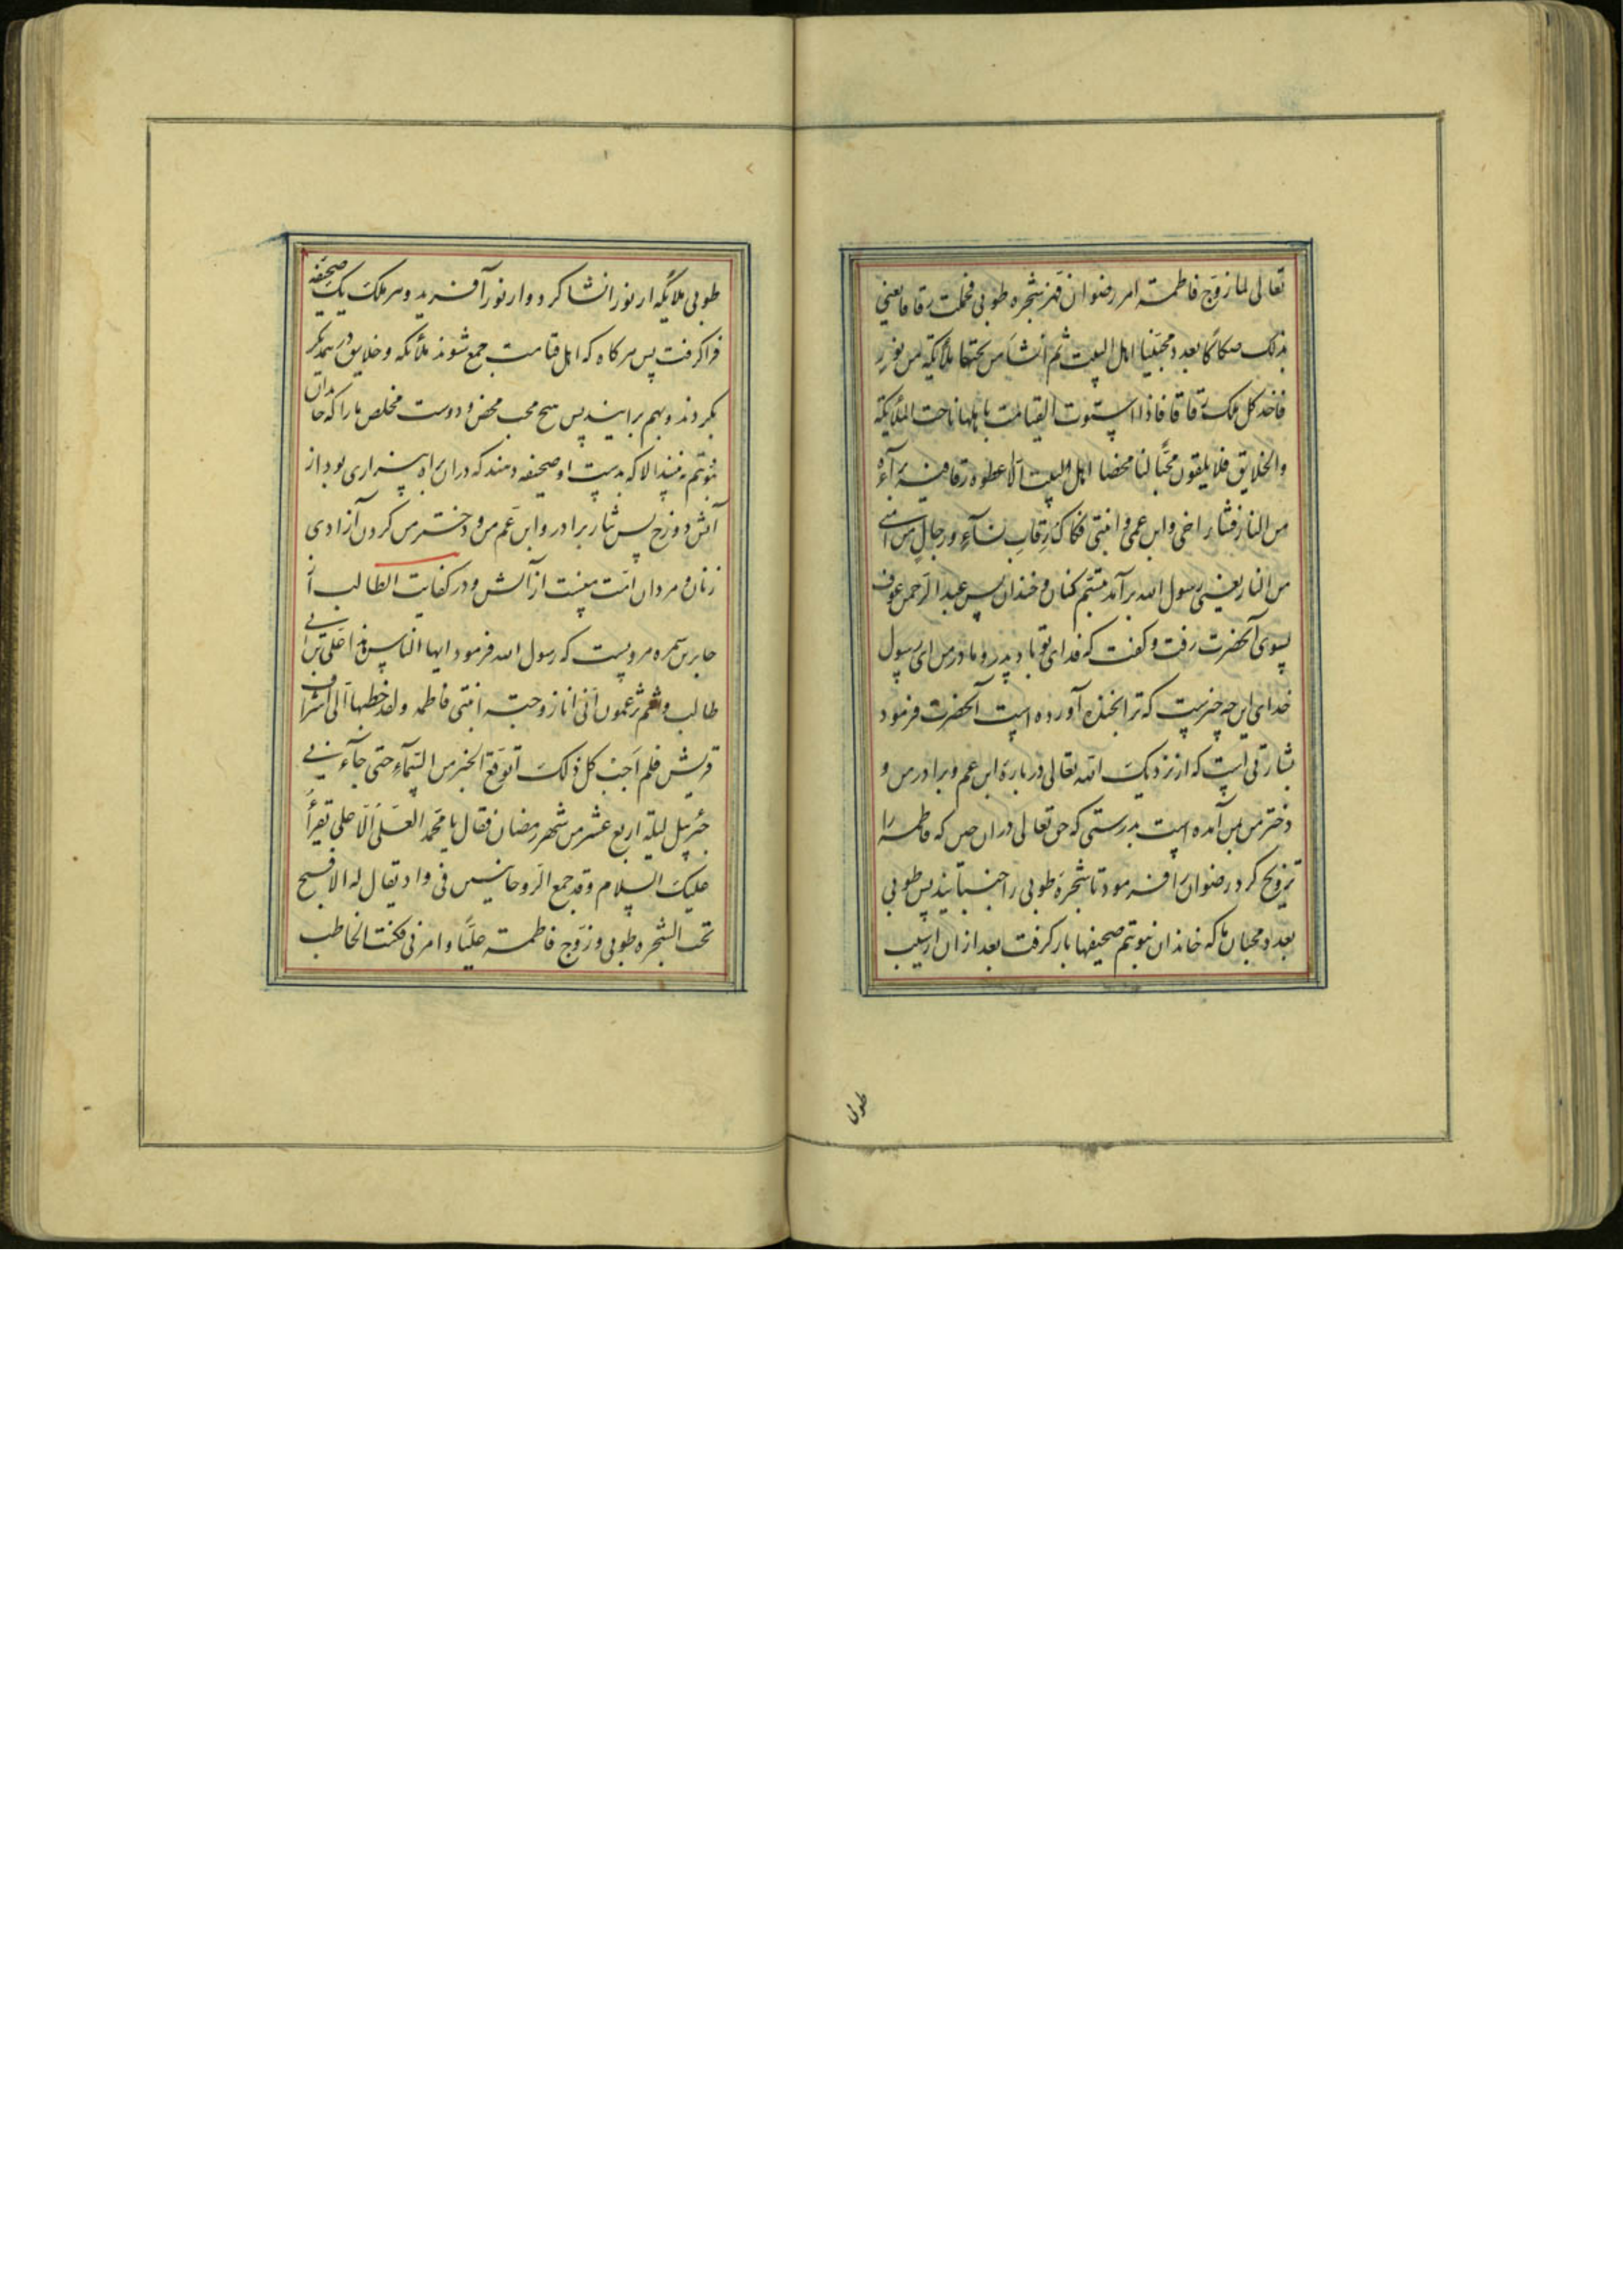 تعالی لما زوج فاطمة امر رضوان فهز شجره طوبی فحملت رقاقا یعنی
بذلک صکاکا بعدد محبینا اهل البیت ثم انشا من تحتها ملائکة من نور
فاخذ کل ملک رقاقا فاذا استوت القیامت باهلها ناحت الملائکة
والخلایق فلا یلقون محبا لنا محضا اهل البیت الا اعطوه رقا فیه برآءة
من النار فنثار اخی و ابن عمی و ابنتی فکاک رقاب نسآء و رجال من امتی
من النار یعنی رسول الله برآمد تبسم کنان و خندان پس عبد الرحمن عوف
بسوی آنحضرت رفت و کفت که فدای تو باد پدر و مادر من ای رسول
خدای این چه چیزیست که ترا بخنده آورده است آنحضرت فرمود
بشارتی است که از نزدیک الله تعالی در باره ابن عم و برادر من و
دختر من بمن آمده است بدرستی که حق تعالی در ان حین که فاطمه را
تزویج کرد رضوان را فرمود تا شجره طوبی را جنبانید پس طوبی
بعدد محبان ما که خاندان نبوتیم صحیفها بار کرفت بعد از ان از سیب
طوبی
طوبی ملایکه از نور انشا کرد و از نور آفرید و هر ملک یک صحیفه
فرا کرفت پس هر کاه که اهل قیامت جمع شوند ملائکه و خلایق در همدیکر
بکردند و بهم برایند پس هیچ محب محض و دوست مخلص ما را که خاندان
نبوتیم نه بینند الا که بدست او صحیفه دهند که در ان براه بیزاری بود از
آتش دوزخ پس نثار برادر و ابن عم من و دختر من کردن آزادی
زنان و مردان امت منست از آتش و در کفایت الطالب از
جابر بن سمره مرویست که رسول الله فرمود ایها الناس هذا علی بن ابی
طالب و انتم تزعمون انی انا زوجته ابنتی فاطمه و لقد خطبها الی اشراف
قریش فلم اجب کل ذلک اتوقع الخبر من السمآء حتی جآءنی
جبرئیل لیلة اربع عشر من شهر رمضان فقال یا محمد العلی الاعلی یقرأ
علیک السلام و قد جمع الروحانیین فی واد یقال له الافیح
تحت الشجره طوبی و زوج فاطمة علیا و امرنی فکنت الخاطب